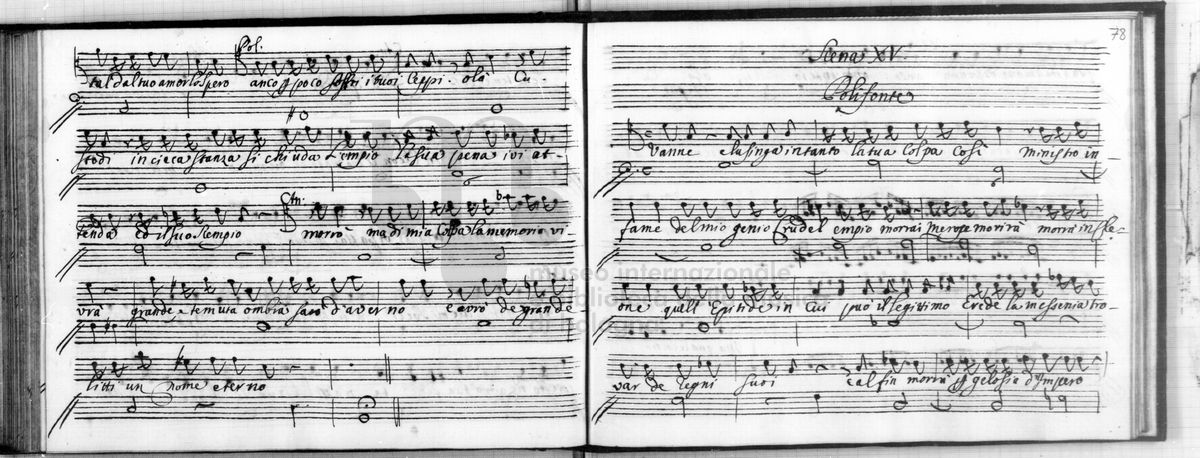 Pol.
tal dal tuo amor lo spero anco p poco soffri i tuoi Ceppi. olà Cu-
stodi in cieca stanza si chiuda l'empio la sua pena ivi at-
Ctn:
tenda et il suo scempio morrò ma di mia Colpa la memoria vi
vrà grande e temuta ombra sarò d'averno e avrò de grand de
litti un nome eterno
78
Scena XV.
Polifonte
Vanne e lusinga in tanto la tua Colpa Così Ministro in-
fame del mio genio Crudel empio morrai Merope morirà morrà in Ste-
one quell' Epitide in Cui può il legittimo Erede la messenia tro-
var de Regni suoi e alfin morrà p gelosia d'Impero
museo internazionale